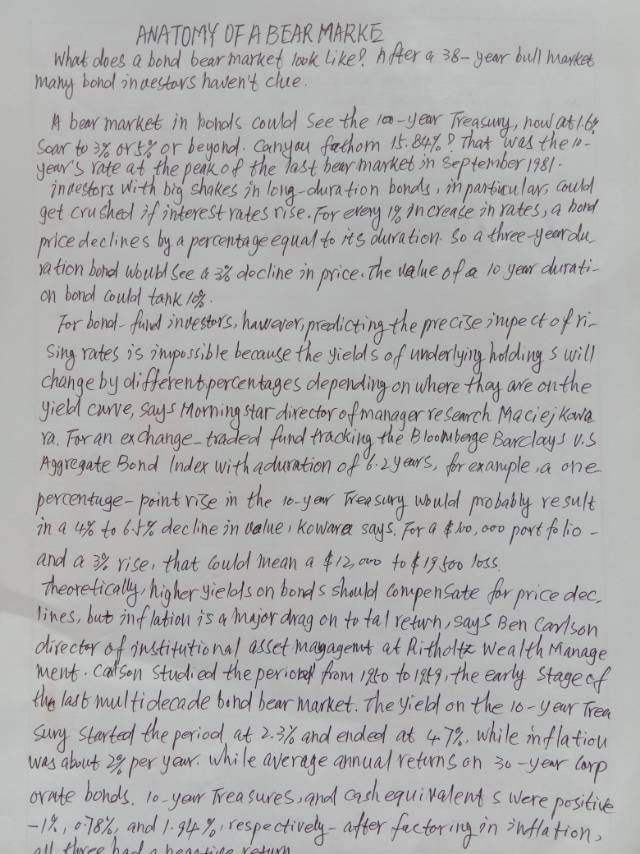 ANATOMY OF A BEAR MARKE
What does a bond bear market look like? After a 38-year bull market
many bond investors haven't clue.
A bear market in bonds could see the 100-year Treasury, now at 1.6%
soar to 3% or 5% or beyond. Can you fathom 15.84%? That was the 10-
year's rate at the peak of the last bear market in September 1981.
investors with big shakes in long-duration bonds, in particular, could
get crushed if interest rates rise. For every 1% increase in rates, a bond
price declines by a percentage equal to its duration. So a three-year du
ration bond would see a 3% decline in price. The value of a 10 year durati-
on bond could tank 10%.
For bond-fund investors, however, predicting the precise impect of ri-
sing rates is impossible because the yields of underlying holding s will
change by different percentages depending on where thay are on the
yield curve, says Morningstar director of manager research Maciej Kowa
ra. For an exchange-traded fund tracking the Bloomberge Barclays U.S
Aggregate Bond Index with a duration of 6.2 years, for example, a one
percentuge-point rise in the 10-year Treasury would probably result
in a 4% to 6.5% decline in value, kowara says. For a $100,000 portfolio -
and a 3% rise, that could mean a $12,000 to $19,500 loss.
Theoretically, higher yields on bonds should compensate for price dec-
lines, but inflation is a major drag on to tal return, says Ben Carlson
director of institutional asset magagemt at Ritholtz Wealth Manage
ment. Carlson studied the period from 1950 to 1959, the early stage of
the last multi decade bond bear market. The yield on the 10-year Trea
sury started the period at 2.3% and ended at 4.7%. While inflation
was about 2% per year. While average annual returns on 30-year Corp
orate bonds, 10-year Treasures, and cash equivalent s were positive
-1%, 0.78%, and 1.94%, respectively- after factoring in inflation,
all three had a negative return